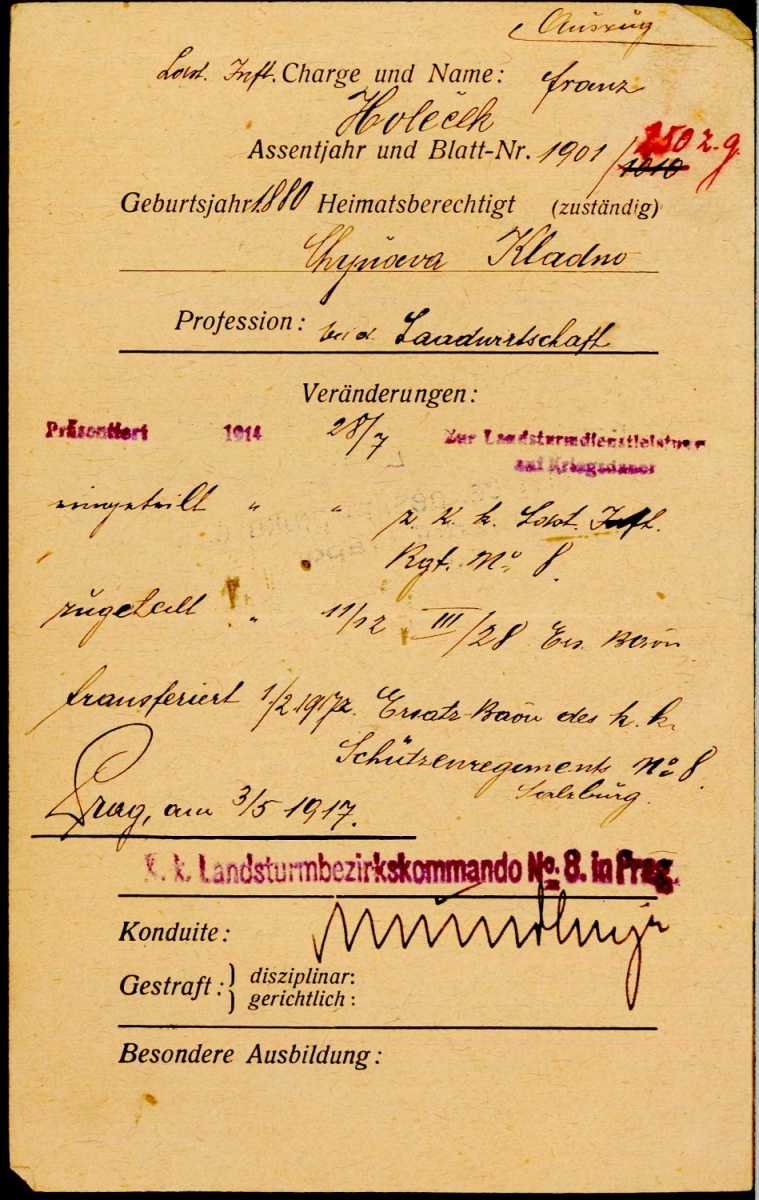 Auszug
Ldst. Inft. Charge und Name: Franz
Holeček
Assentjahr und Blatt-Nr. 1901/1010 250 z. g.
Geburtsjahr 1880 Heimatsberechtigt (zuständig)
Kladno
Profession: bei d. Landwirtschaft
Veränderungen:
Präsentiert 1914 28/7 Zur Landsturmdienstleistung
auf Kriegsdauer
eingeteilt " " z. k. k. Ldst. Inft.
Rgt. No 8.
zugeteilt " 11/12 III/28 Ers. Baon
transferiert 1/2 1917 z. Ersatz-Baon des k. k.
Schützenregiments No 8.
Salzburg.
Prag, am 3/5 1917.
k. k. Landsturmbezirkskommando No. 8. in Prag.
Konduite:
Gestraft: } disziplinar:
gerichtlich:
Besondere Ausbildung: